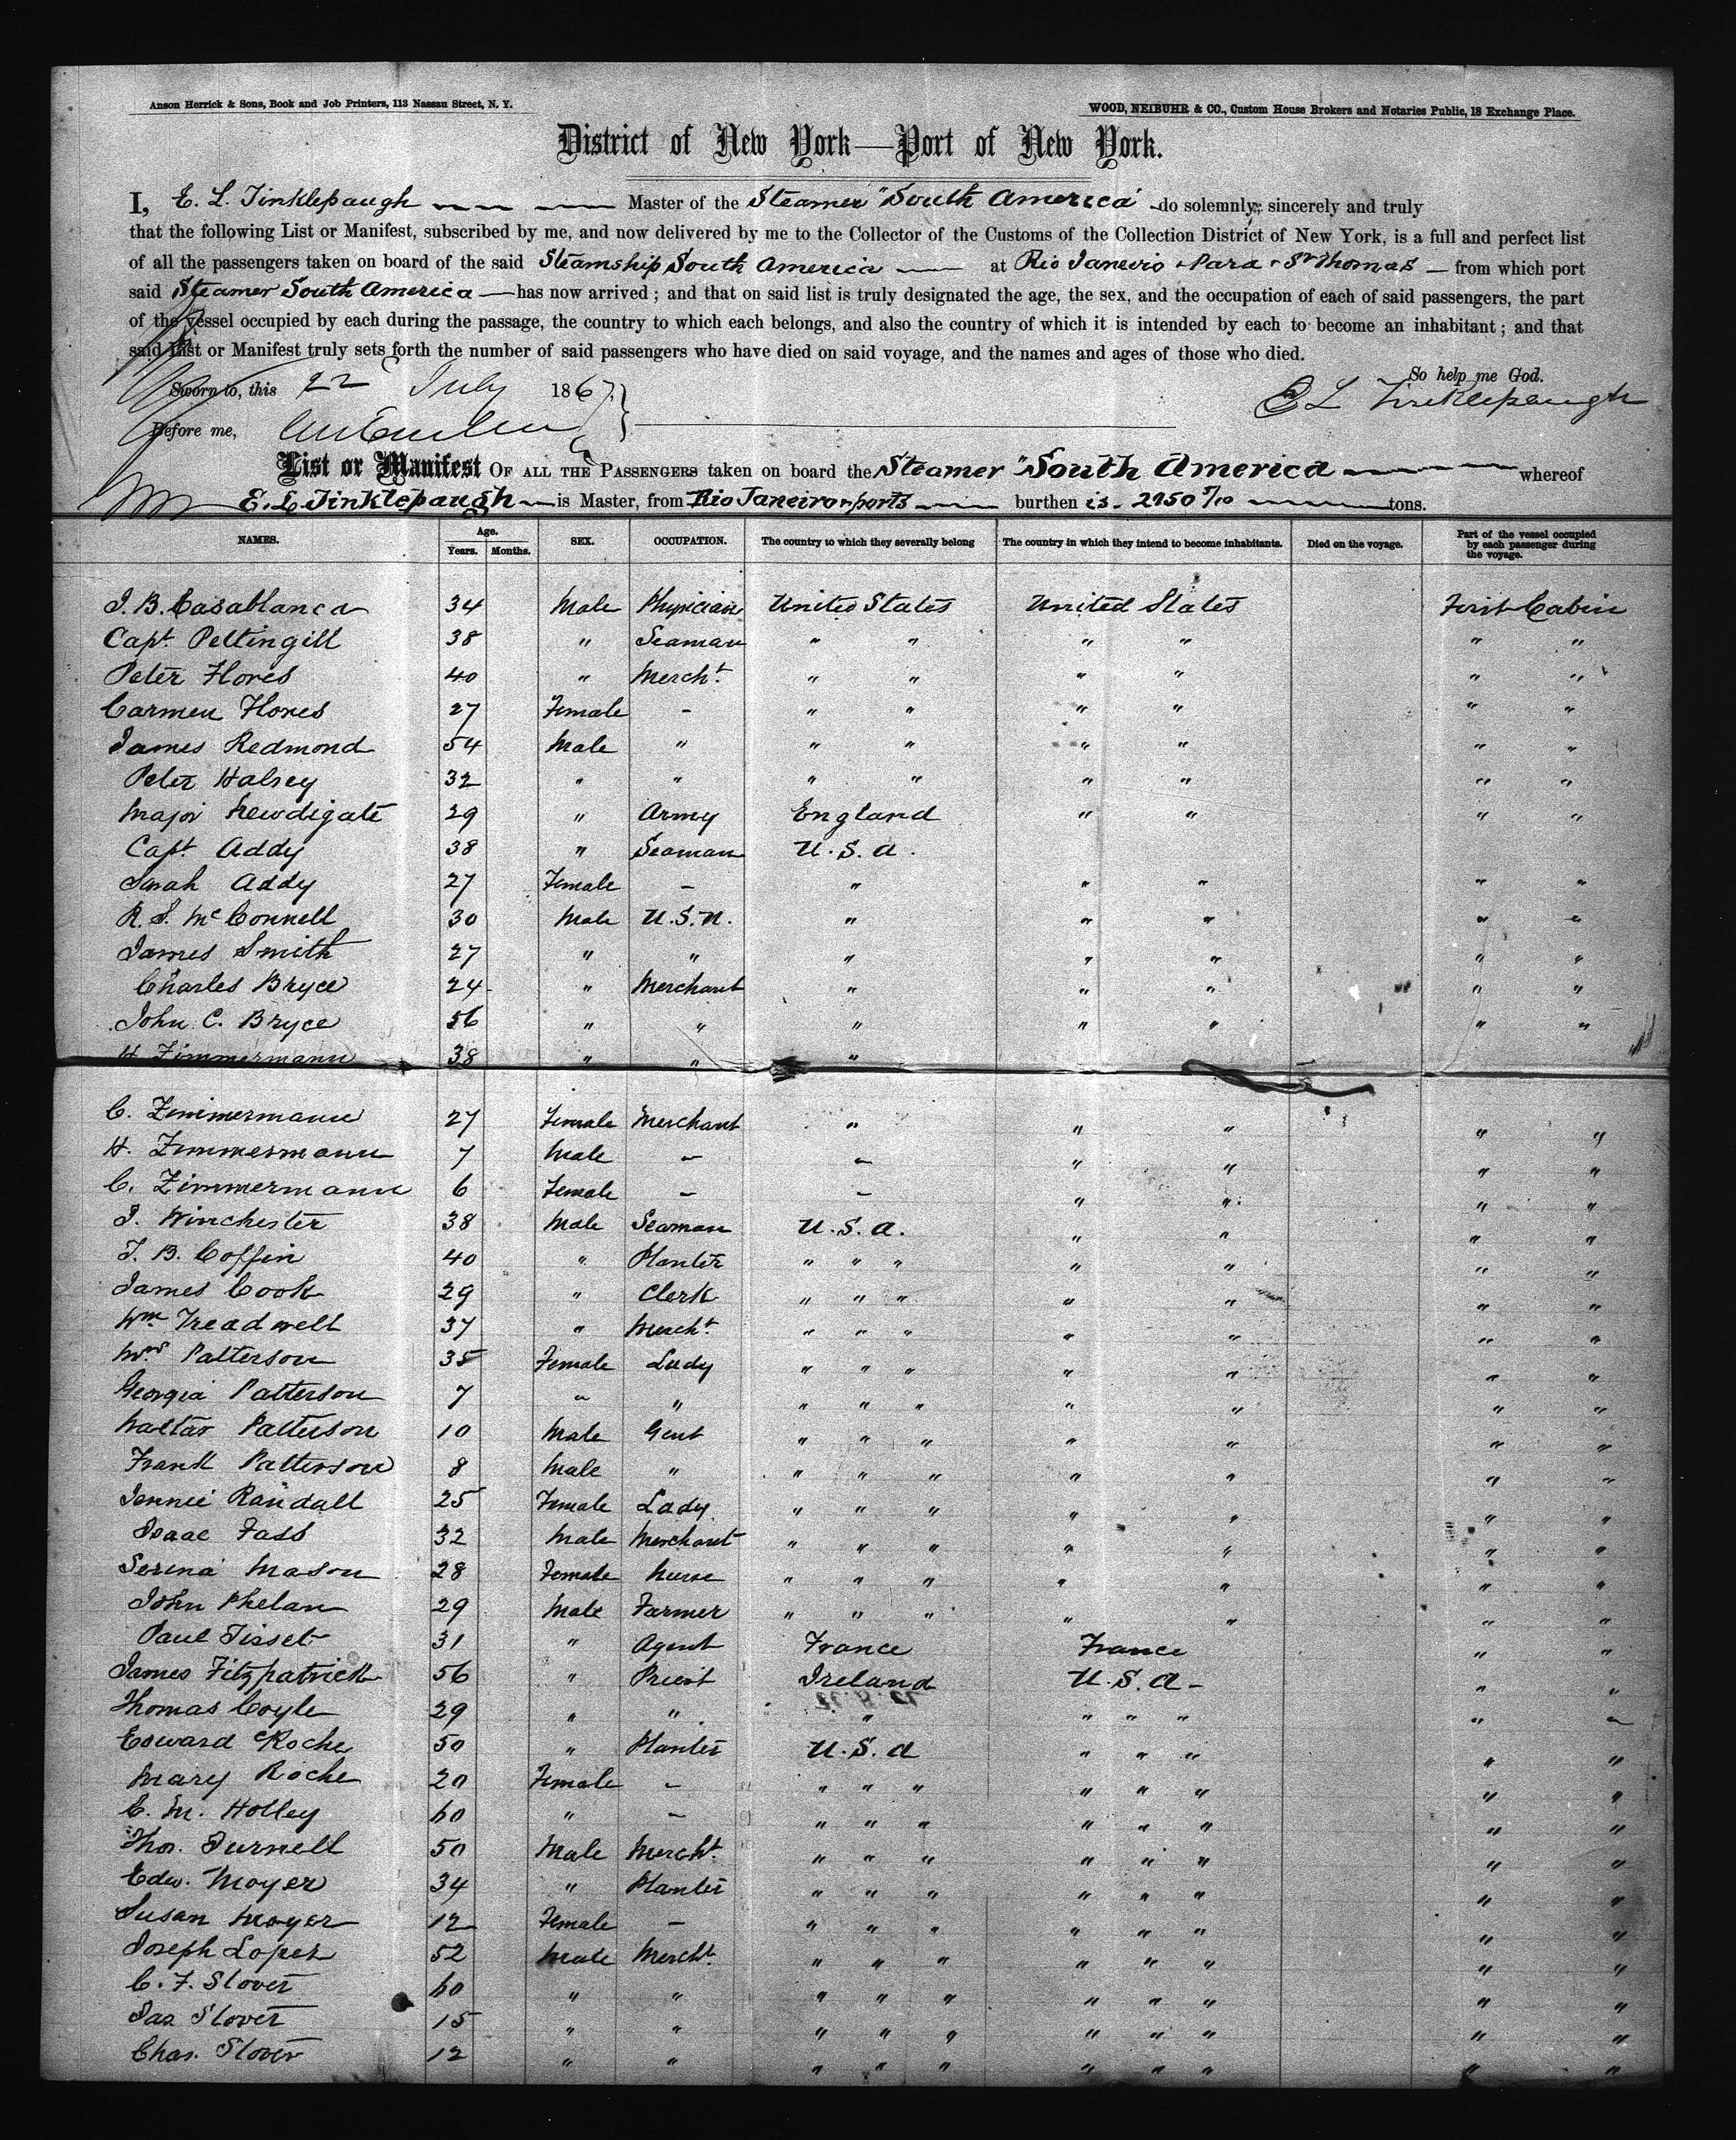 Anson Herrick & Sons, Book and Job Printers, 113 Nassau Street, N. Y.
WOOD, NEIBUHR & CO., Custom House Brokers and Notaries Public, 18 Exchange Place.
District of New York—Port of New York.
I, E. L. Tinklepaugh Master of the Steamer "South America" do solemnly, sincerely and truly
that the following List or Manifest, subscribed by me, and now delivered by me to the Collector of the Customs of the Collection District of New York, is a full and perfect list
of all the passengers taken on board of the said Steamship South America at Rio Janeiro + Para + St Thomas — from which port
said Steamer South America — has now arrived; and that on said list is truly designated the age, the sex, and the occupation of each of said passengers, the part
of the vessel occupied by each during the passage, the country to which each belongs, and also the country of which it is intended by each to become an inhabitant; and that
said List or Manifest truly sets forth the number of said passengers who have died on said voyage, and the names and ages of those who died.
So help me God.
Sworn to, this 22 July 1867. E L Tinklepaugh
Before me,
List or Manifest OF ALL THE PASSENGERS taken on board the Steamer "South America whereof
E. L Tinklepaugh — is Master, from Rio Janeiro + ports burthen is - 2150 7/10 tons.
NAMES. Age. Years. Months. SEX. OCCUPATION. The country to which they severally belong The country in which they intend to become inhabitants. Died on the voyage. Part of the vessel occupied by each passenger during the voyage.
J. B. Casablanca 34 Male Physician United States United States First Cabin
Capt. Peltingill 38 " Seaman " " " " " "
Peter Flores 40 " Mercht. " " " " " "
Carmen Flores 27 Female - " " " " " "
James Redmond 54 Male " " " " " " "
Peter Halsey 32 " " " " " " " "
Major Newdigate 29 " Army England " " " "
Capt. Addy 38 " Seaman U.S.A.
Sarah Addy 27 Female - " " " " "
R. S. McConnell 30 Male U.S.N. " " " " "
James Smith 27 " " " " " " "
Charles Bryce 24 " Merchant " " " " "
John C. Bryce 56 " " " " " " "
H Zimmermann 38 " " "
C. Zimmermann 27 Female Merchant " " " " "
H. Zimmermann 7 Male - " " " " "
C. Zimmermann 6 Female - - " " " "
J. Winchester 38 Male Seaman U.S.A. " " " "
T. B. Coffin 40 " Planter " " " " " " "
James Cook 29 " Clerk " " " " " " "
Wm. Treadwell 37 " Mercht. " " " " " " "
Mrs Patterson 35 Female Lady " " " " " " "
Georgia Patterson 7 " " " " " " " " "
Walter Patterson 10 Male Gent " " " " " " "
Frank Patterson 8 Male " " " " " " " "
Jennie Randall 25 Female Lady " " " " " " "
Isaac Fass 32 Male Merchant " " " " " " "
Serena Mason 28 Female Nurse " " " " " " "
John Phelan 29 Male Farmer " " " " " " "
Paul Tisset 31 " Agent France France " "
James Fitzpatrick 56 " Priest Ireland U.S.A - " "
Thomas Coyle 29 " " " " " " " "
Edward Roche 50 " Planter U.S.A " " " " "
Mary Roche 20 Female - " " " " " " " "
C. M. Holley 60 " - " " " " " " " "
Thos. Turnell 50 Male Mercht. " " " " " " " "
Edw. Moyer 34 " Planter " " " " " " " "
Susan Moyer 12 Female - " " " " " " " "
Joseph Lopez 52 Male Mercht. " " " " " " " "
C. F. Slover 60 " " " " " " " " " "
Jas Slover 15 " " " " " " " " " "
Chas. Slover 12 " " " " " " " " " "